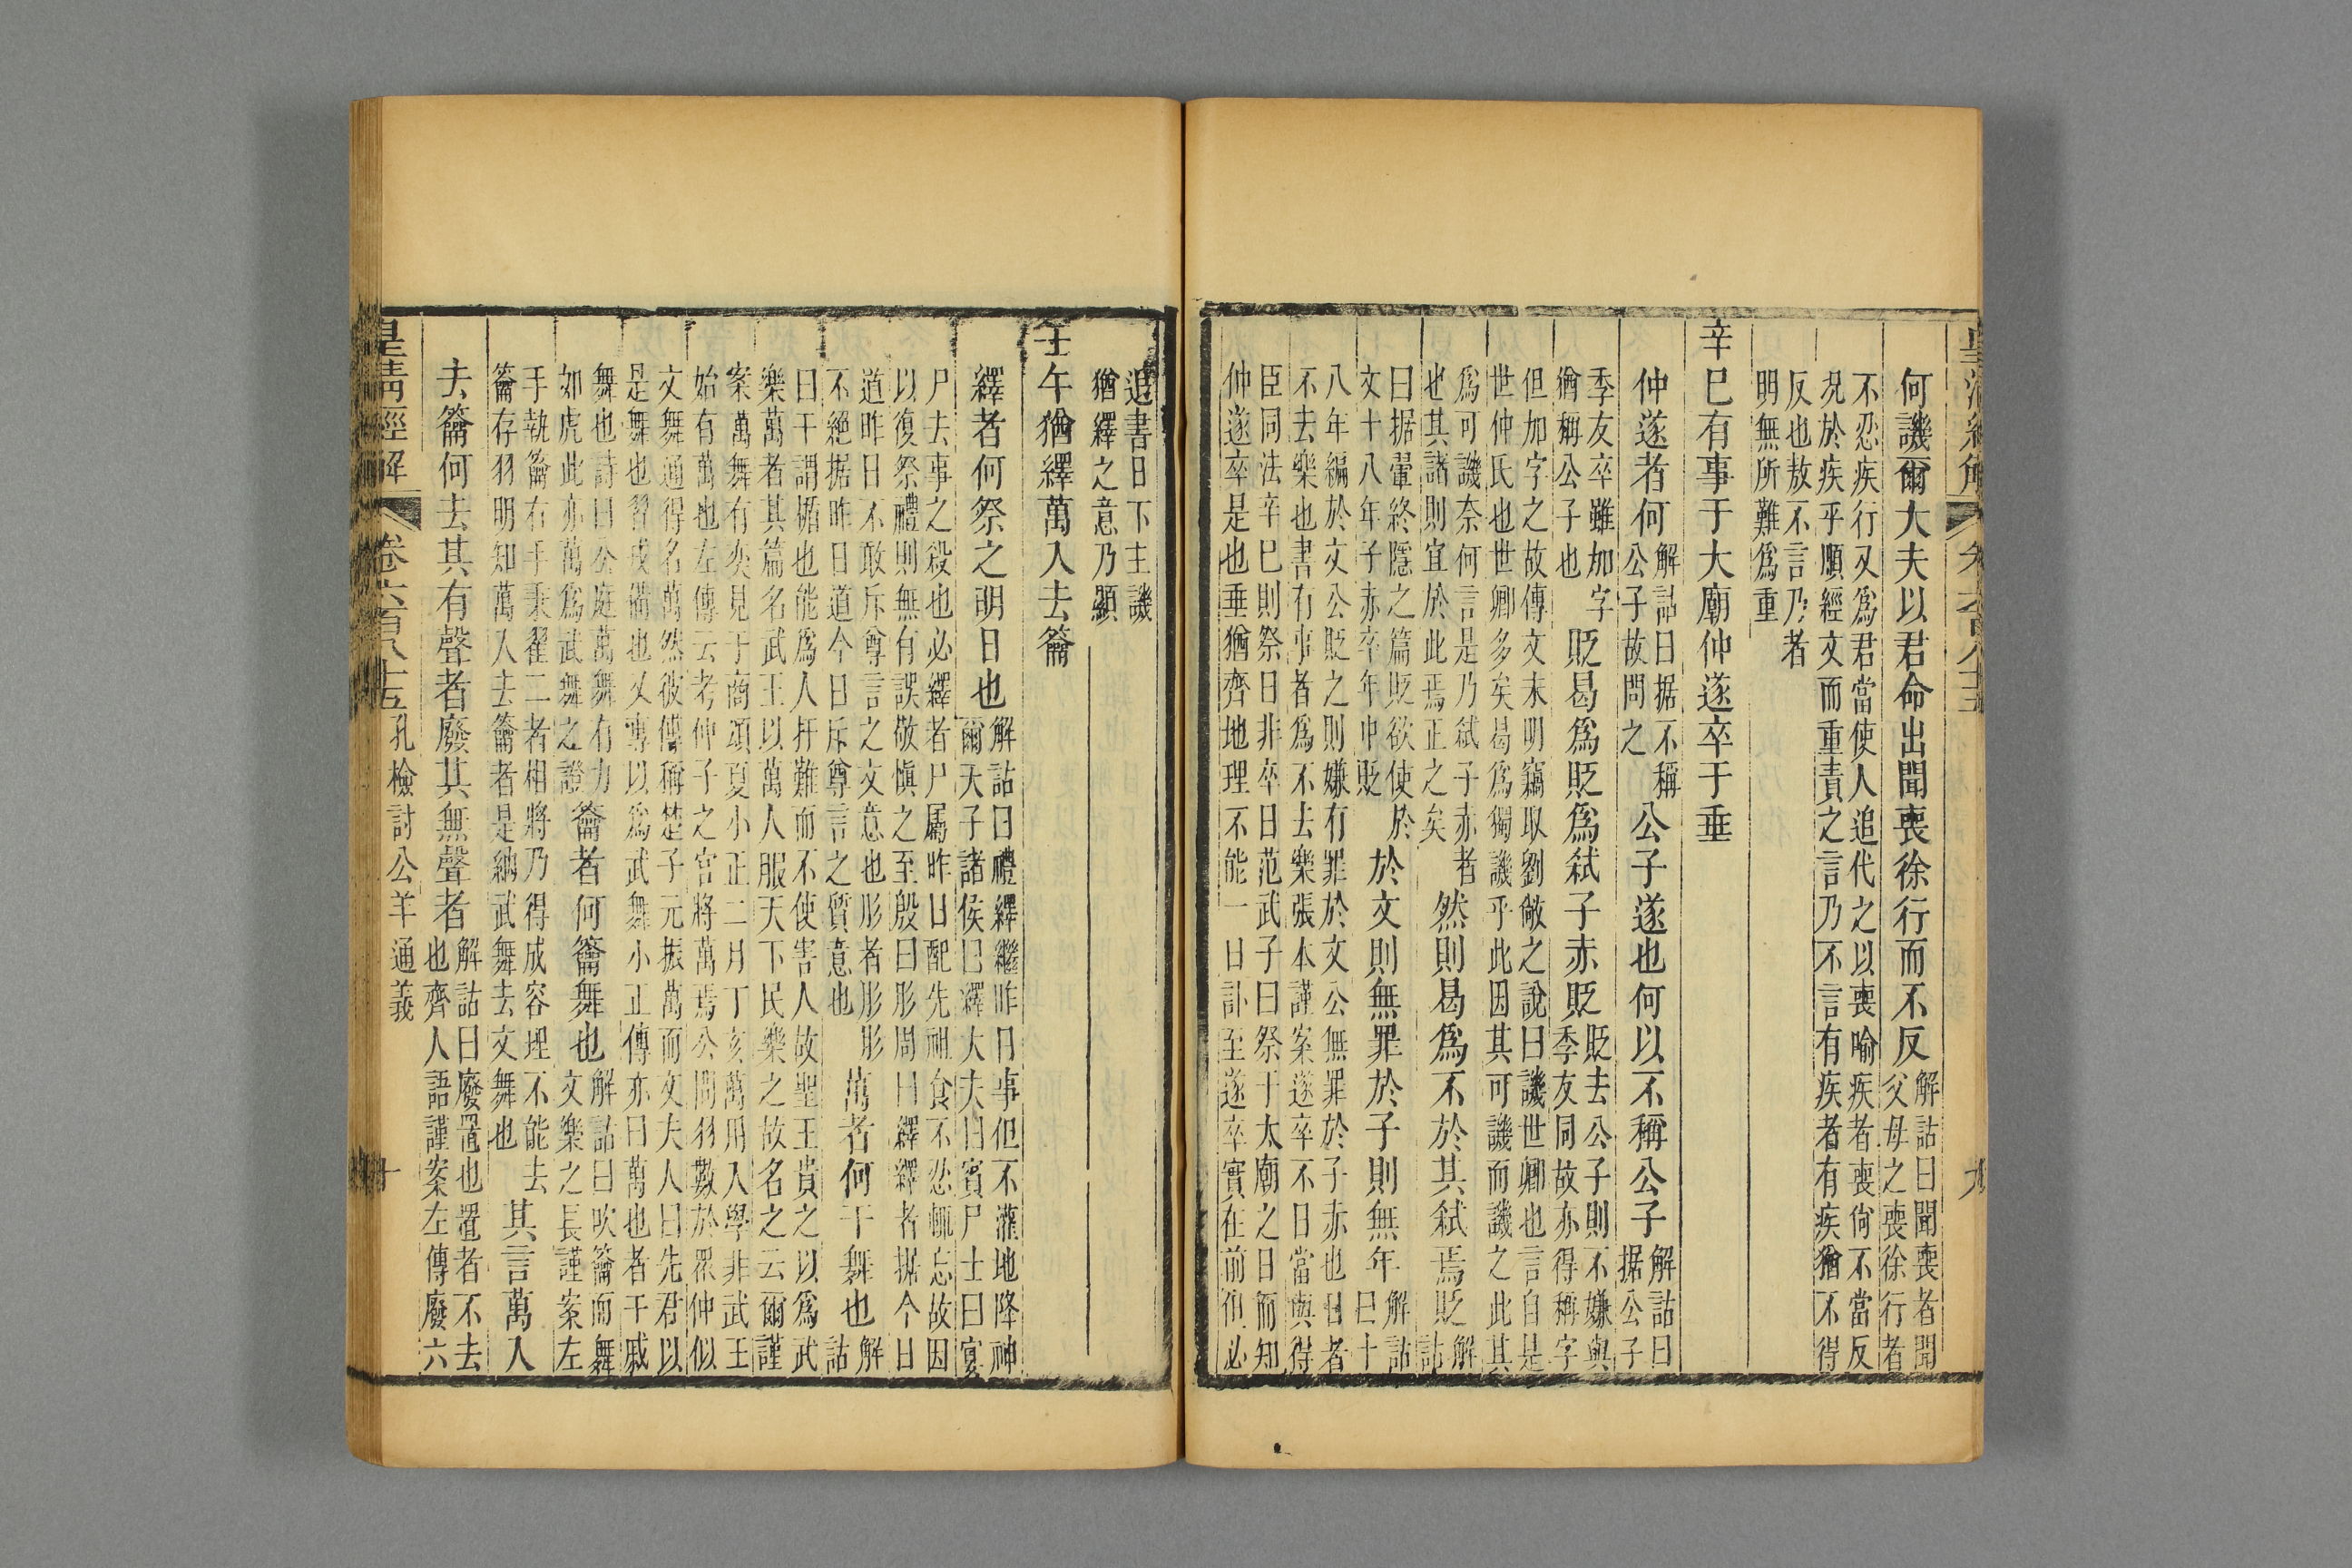 何譏爾大夫以君命出聞喪徐行而不反解詁曰聞喪者聞父母之喪徐行者
不忍疾行又爲君當使人追代之以喪喻疾者喪尙不當反
況於疾乎順經文而重責之言乃不言有疾者有疾猶不得
反也敖不言乃者
明無所難爲重
辛巳有事于大廟仲遂卒于垂
仲遂者何解詁曰据不稱公子故問之公子遂也何以不稱公子解詁曰据公子
季友卒雖加字猶稱公子也貶曷爲貶爲弒子赤貶貶去公子則不嫌與季友同故亦得稱字
但加字之故傳文未明竊取劉敞之說曰譏世卿也言自是
世仲氏也世世卿多矣曷爲獨譏乎此因其可譏而譏之此其
爲可譏奈何言是乃弒子赤者也其諸則宜於此焉正之矣然則曷爲不於其弒焉貶解詁
曰据翬終隱之篇貶欲使於文十八年子赤卒年中貶於文則無罪於子則無年解詁曰十
八年編於文公貶之則嫌有罪於文公無罪於子赤也日者
不去樂也書有事者爲不去樂張本謹案遂卒不日當與得
臣同法辛巳則祭日非卒日范武子曰祭于太廟之日而知
仲遂卒是也垂猶齊地理不能一日訃至遂卒實在前但必
追書日下主譏
猶繹之意乃顯
壬午猶繹萬入去籥
繹者何祭之明日也解詁曰禮繹繼昨日事但不灌地降神爾天子諸侯曰繹大夫曰賓尸士曰宴
尸去事之殺也必繹者尸屬昨日配先祖食不忍輒忘故因
以復祭禮則無有誤敬愼之至殷曰肜周曰繹繹者据今日
道昨日不敢斥尊言之文意也肜者肜肜
不絕据昨日道今日斥尊言之質意也萬者何干舞也解詁
曰干謂楯也能爲人扞難而不使害人故聖王貴之以爲武
樂萬者其篇名武王以萬人服天下民樂之故名之云爾謹
案萬舞有奕見于商頌夏小正二月丁亥萬用入學非武王
始有萬也左傳云考仲子之宮將萬焉公問羽數於眾仲似
文舞通得名萬然彼傳稱楚子元振萬而文夫人曰先君以
是舞也習戎備也又專以爲武舞小正傳亦曰萬也者干戚
舞也詩曰公庭萬舞有力如虎此亦萬爲武舞之證籥者何籥舞也解詁曰吹籥而舞文樂之長謹案左
手執籥右手秉翟二者相將乃得成容理不能去
籥存羽明知萬入去籥者是納武舞去文舞也其言萬入
去籥何去其有聲者廢其無聲者解詁曰廢置也置者不去也齊人語謹案左傳廢六
皇淸經解 卷六百八十五 孔檢討公羊通義 十